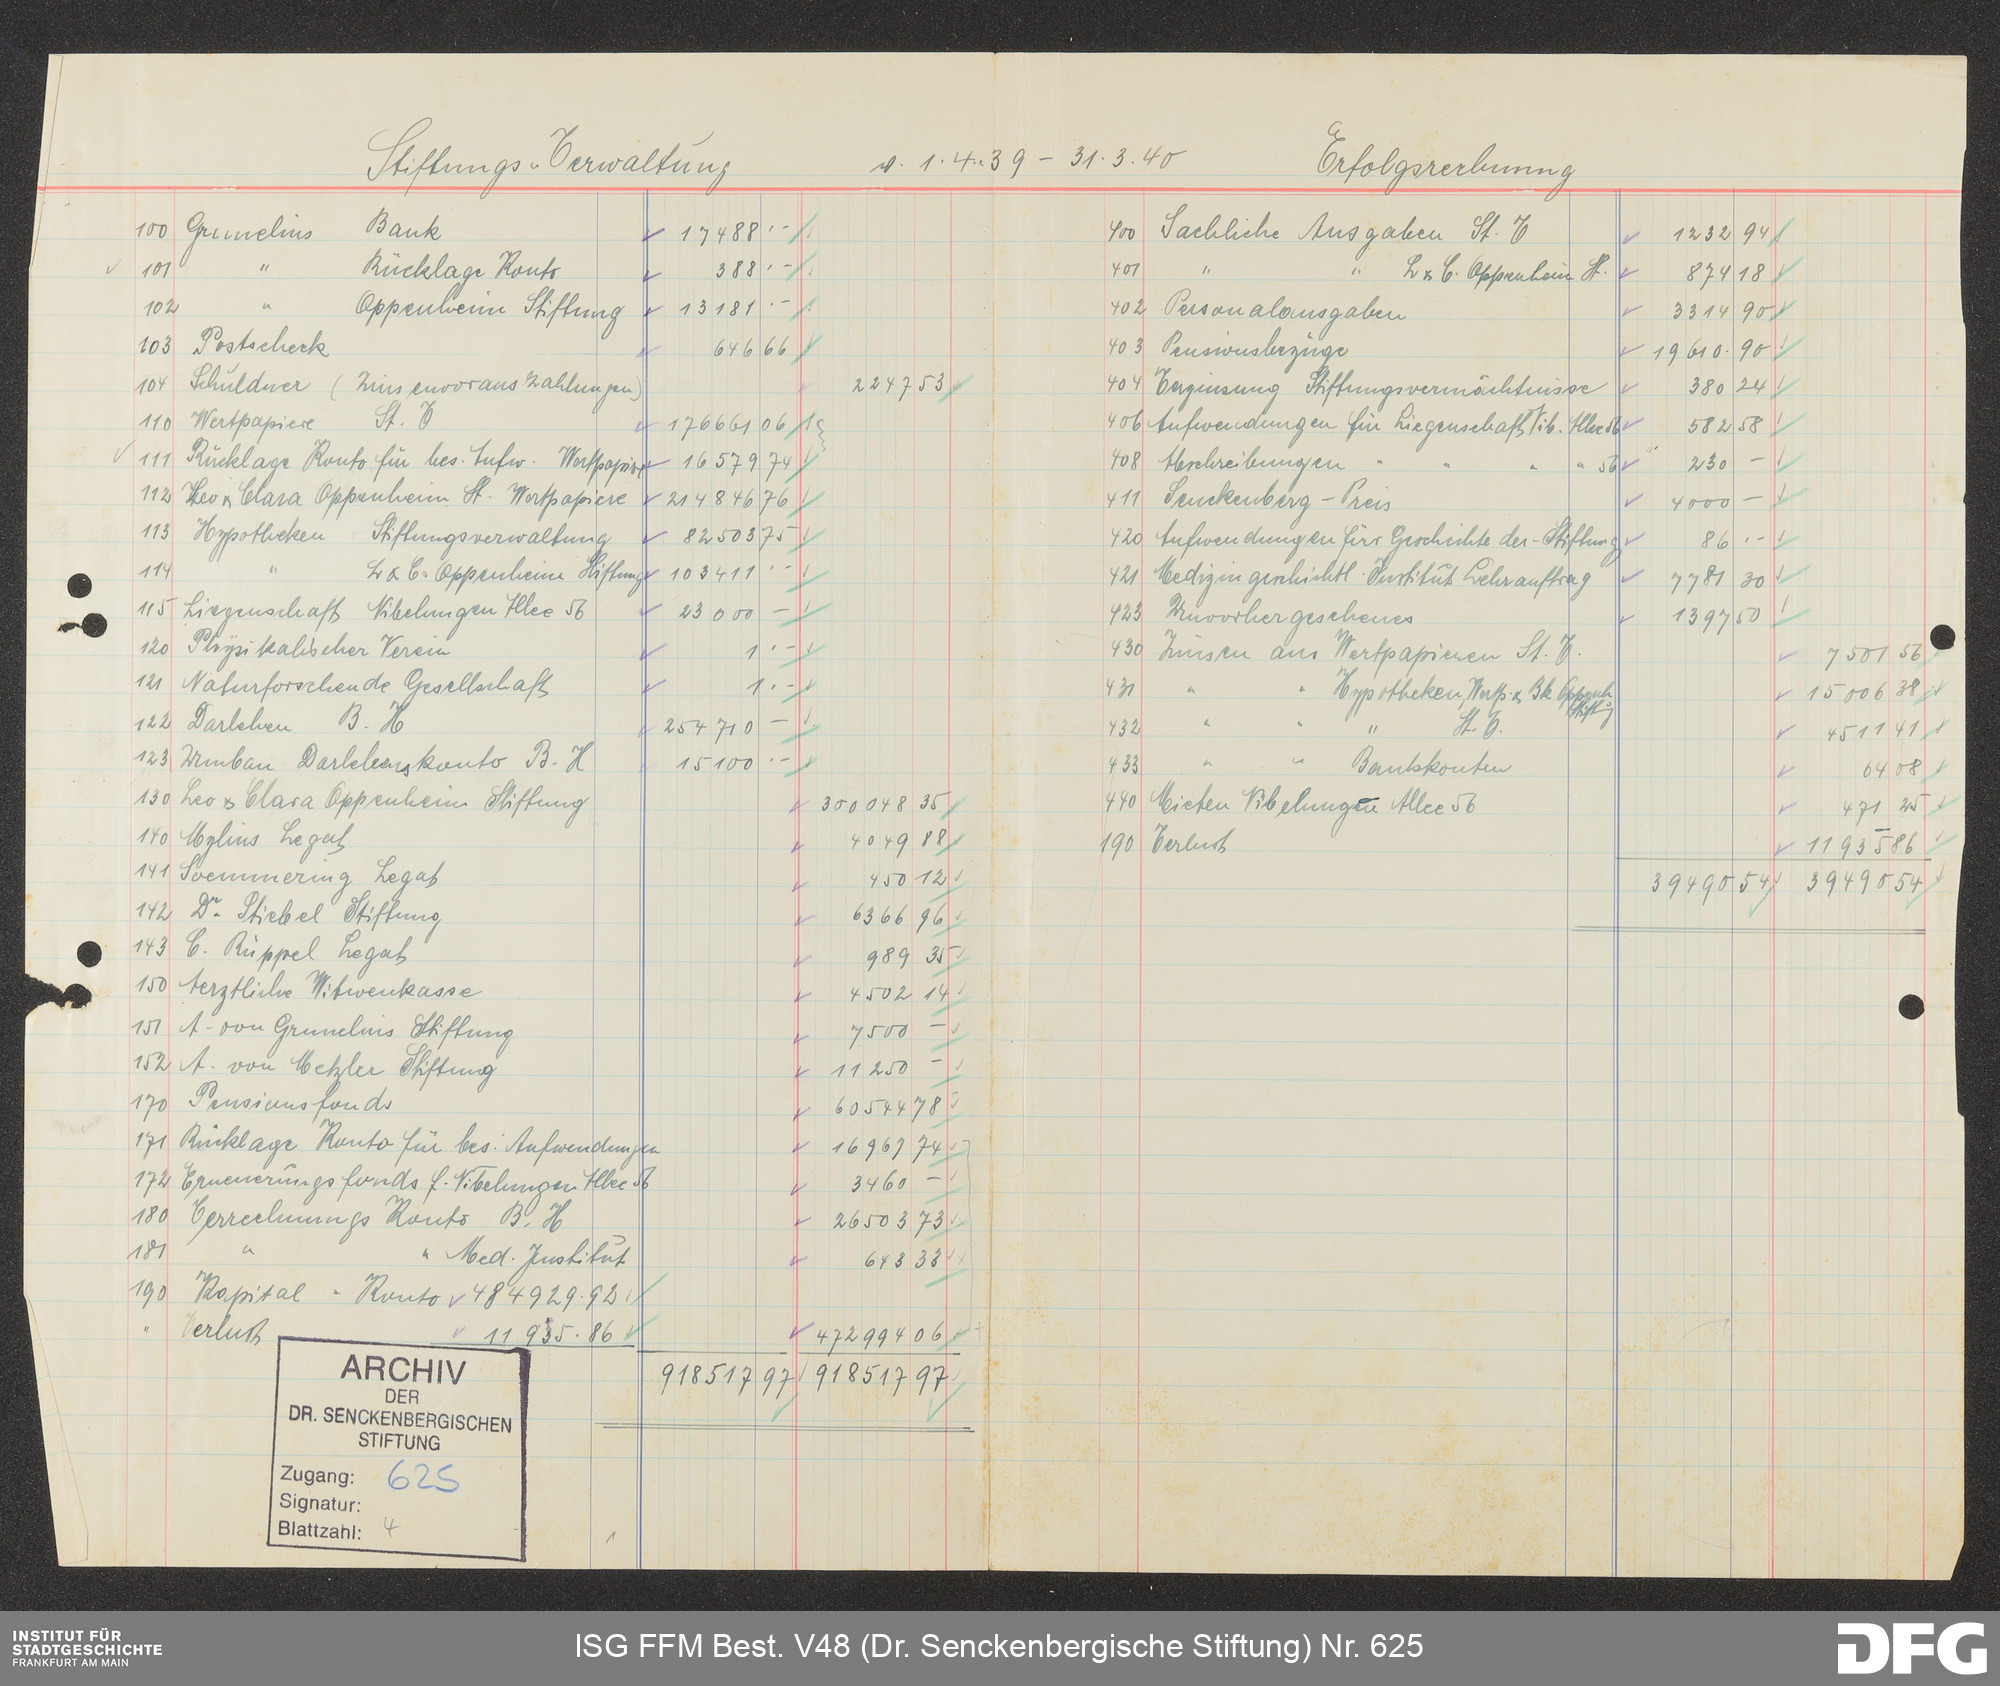 Stiftungs-Verwaltung v. 1.4.39 – 31.3.40 Erfolgsrechnung
100 Grunelius Bank 17488 .–
101 " Rücklage Konto 388 .–
102 " Oppenheim Stiftung 13181 .–
103 Postscheck 646 66
104 Schuldner (Zinsenvorauszahlungen) 2247 53
110 Wertpapiere St. V 176661 06
111 Rücklage Konto für bes. Aufw. Wertpapiere 16579 74
112 Leo & Clara Oppenheim St. Wertpapiere 214846 76
113 Hypotheken Stiftungsverwaltung 82503 75
114 " L & C. Oppenheim Stiftung 103411 .–
115 Liegenschaft Nibelungen Allee 56 23000 –
120 Physikalischer Verein 1 .–
121 Naturforschende Gesellschaft 1 .–
122 Darlehen B. H 254710 –
123 Umbau Darlehenskonto B. H 15100 .–
130 Leo & Clara Oppenheim Stiftung 300048 35
140 Mylius Legat 4049 88
141 Soemmering Legat 450 12
142 Dr. Stiebel Stiftung 6366 96
143 C. Rüppel Legat 989 35
150 Aerztliche Witwenkasse 4502 14
151 A. von Grunelius Stiftung 7500 –
152 A. von Metzler Stiftung 11250 –
170 Pensionsfonds 60544 78
171 Rücklage Konto für bes. Aufwendungen 16967 74
172 Erneuerungsfonds f. Nibelungen Allee 56 3460 –
180 Verrechnungs Konto B. H 26503 73
181 " " Med. Institut 643 33
190 Kapital - Konto 484929.92
" Verlust 11935.86 472994 06
918517 97 918517 97
400 Sachliche Ausgaben St. V 1232 94
401 " " L & C. Oppenheim St. 874 18
402 Personalausgaben 3314 90
403 Pensionsbezüge 19610. 90
404 Verzinsung Stiftungsvermächtnisse 380 24
406 Aufwendungen für Liegenschaft Nib. Allee 56 582 58
408 Abschreibungen " " " " 56 230 –
411 Senckenberg – Preis 4000 –
420 Aufwendungen für Geschichte der Stiftung 86 .–
421 Medizingeschichtl. Institut Lehrauftrag 7781 30
423 Unvorhergesehenes 1397 50
430 Zinsen aus Wertpapieren St. V. 7501 56
431 " " Hypotheken, Wertp. & Bk Oppenh Stiftg 15006 38
432 " " " St. V. 4511 41
433 " " Bankkonten 64 08
440 Mieten Nibelungen Allee 56 471 25
190 Verlust 11935 86
39490 54 39490 54
ARCHIV
DER
DR. SENCKENBERGISCHEN
STIFTUNG
Zugang: 625
Signatur:
Blattzahl: 4
INSTITUT FÜR
STADTGESCHICHTE
FRANKFURT AM MAIN
ISG FFM Best. V48 (Dr. Senckenbergische Stiftung) Nr. 625
DFG